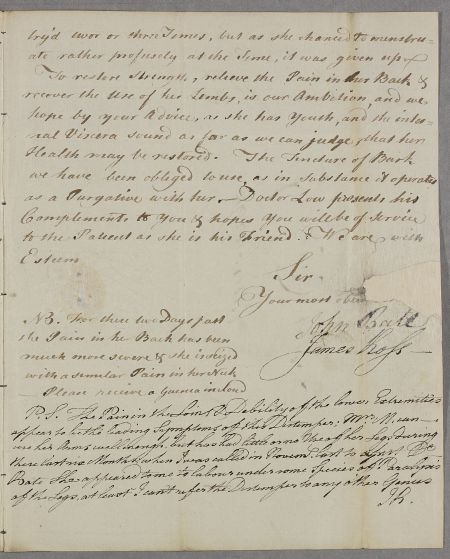 try'd two or three Times, but as she chanced to menstru-
ate rather profusely at the Time, it was given up
To restore Strength, relieve the Pain in her Back &
recover the Use of her Lembs, is our Ambition, and we
hope by your Advice, as she has Youth, and the inter-
nal Viscera sound as far as we can judge, that her
Health may be restored. The Tincture of Bark
we have been obliged to use, as in Substance it operates
as a Purgative with her. Doctor Low presents his
Complements to You & hopes You will be of Service
to the Patient as she is his Friend. We are with
Esteem
Sir
Your most
John Bate
James Ross
NB. For these two Days past
the Pain in her Back has been
much more severe & she is seized
with a simular Pain in her Neck
Please receive a Guinea inclosed
P.S. The Pain in the Loins & Debility of the lower Extremities
appear to be the leading Symptoms of this Distemper; Mrs
her Arms well enough, but has had little or no Use of her Legs during
these last six Months & when I was called in Novemr. last to assist Dr.
Bate she appeared to me to labour under some Species of Paralysis
of the Legs, at least I can't refer the Distemper to any other Genus
JR.